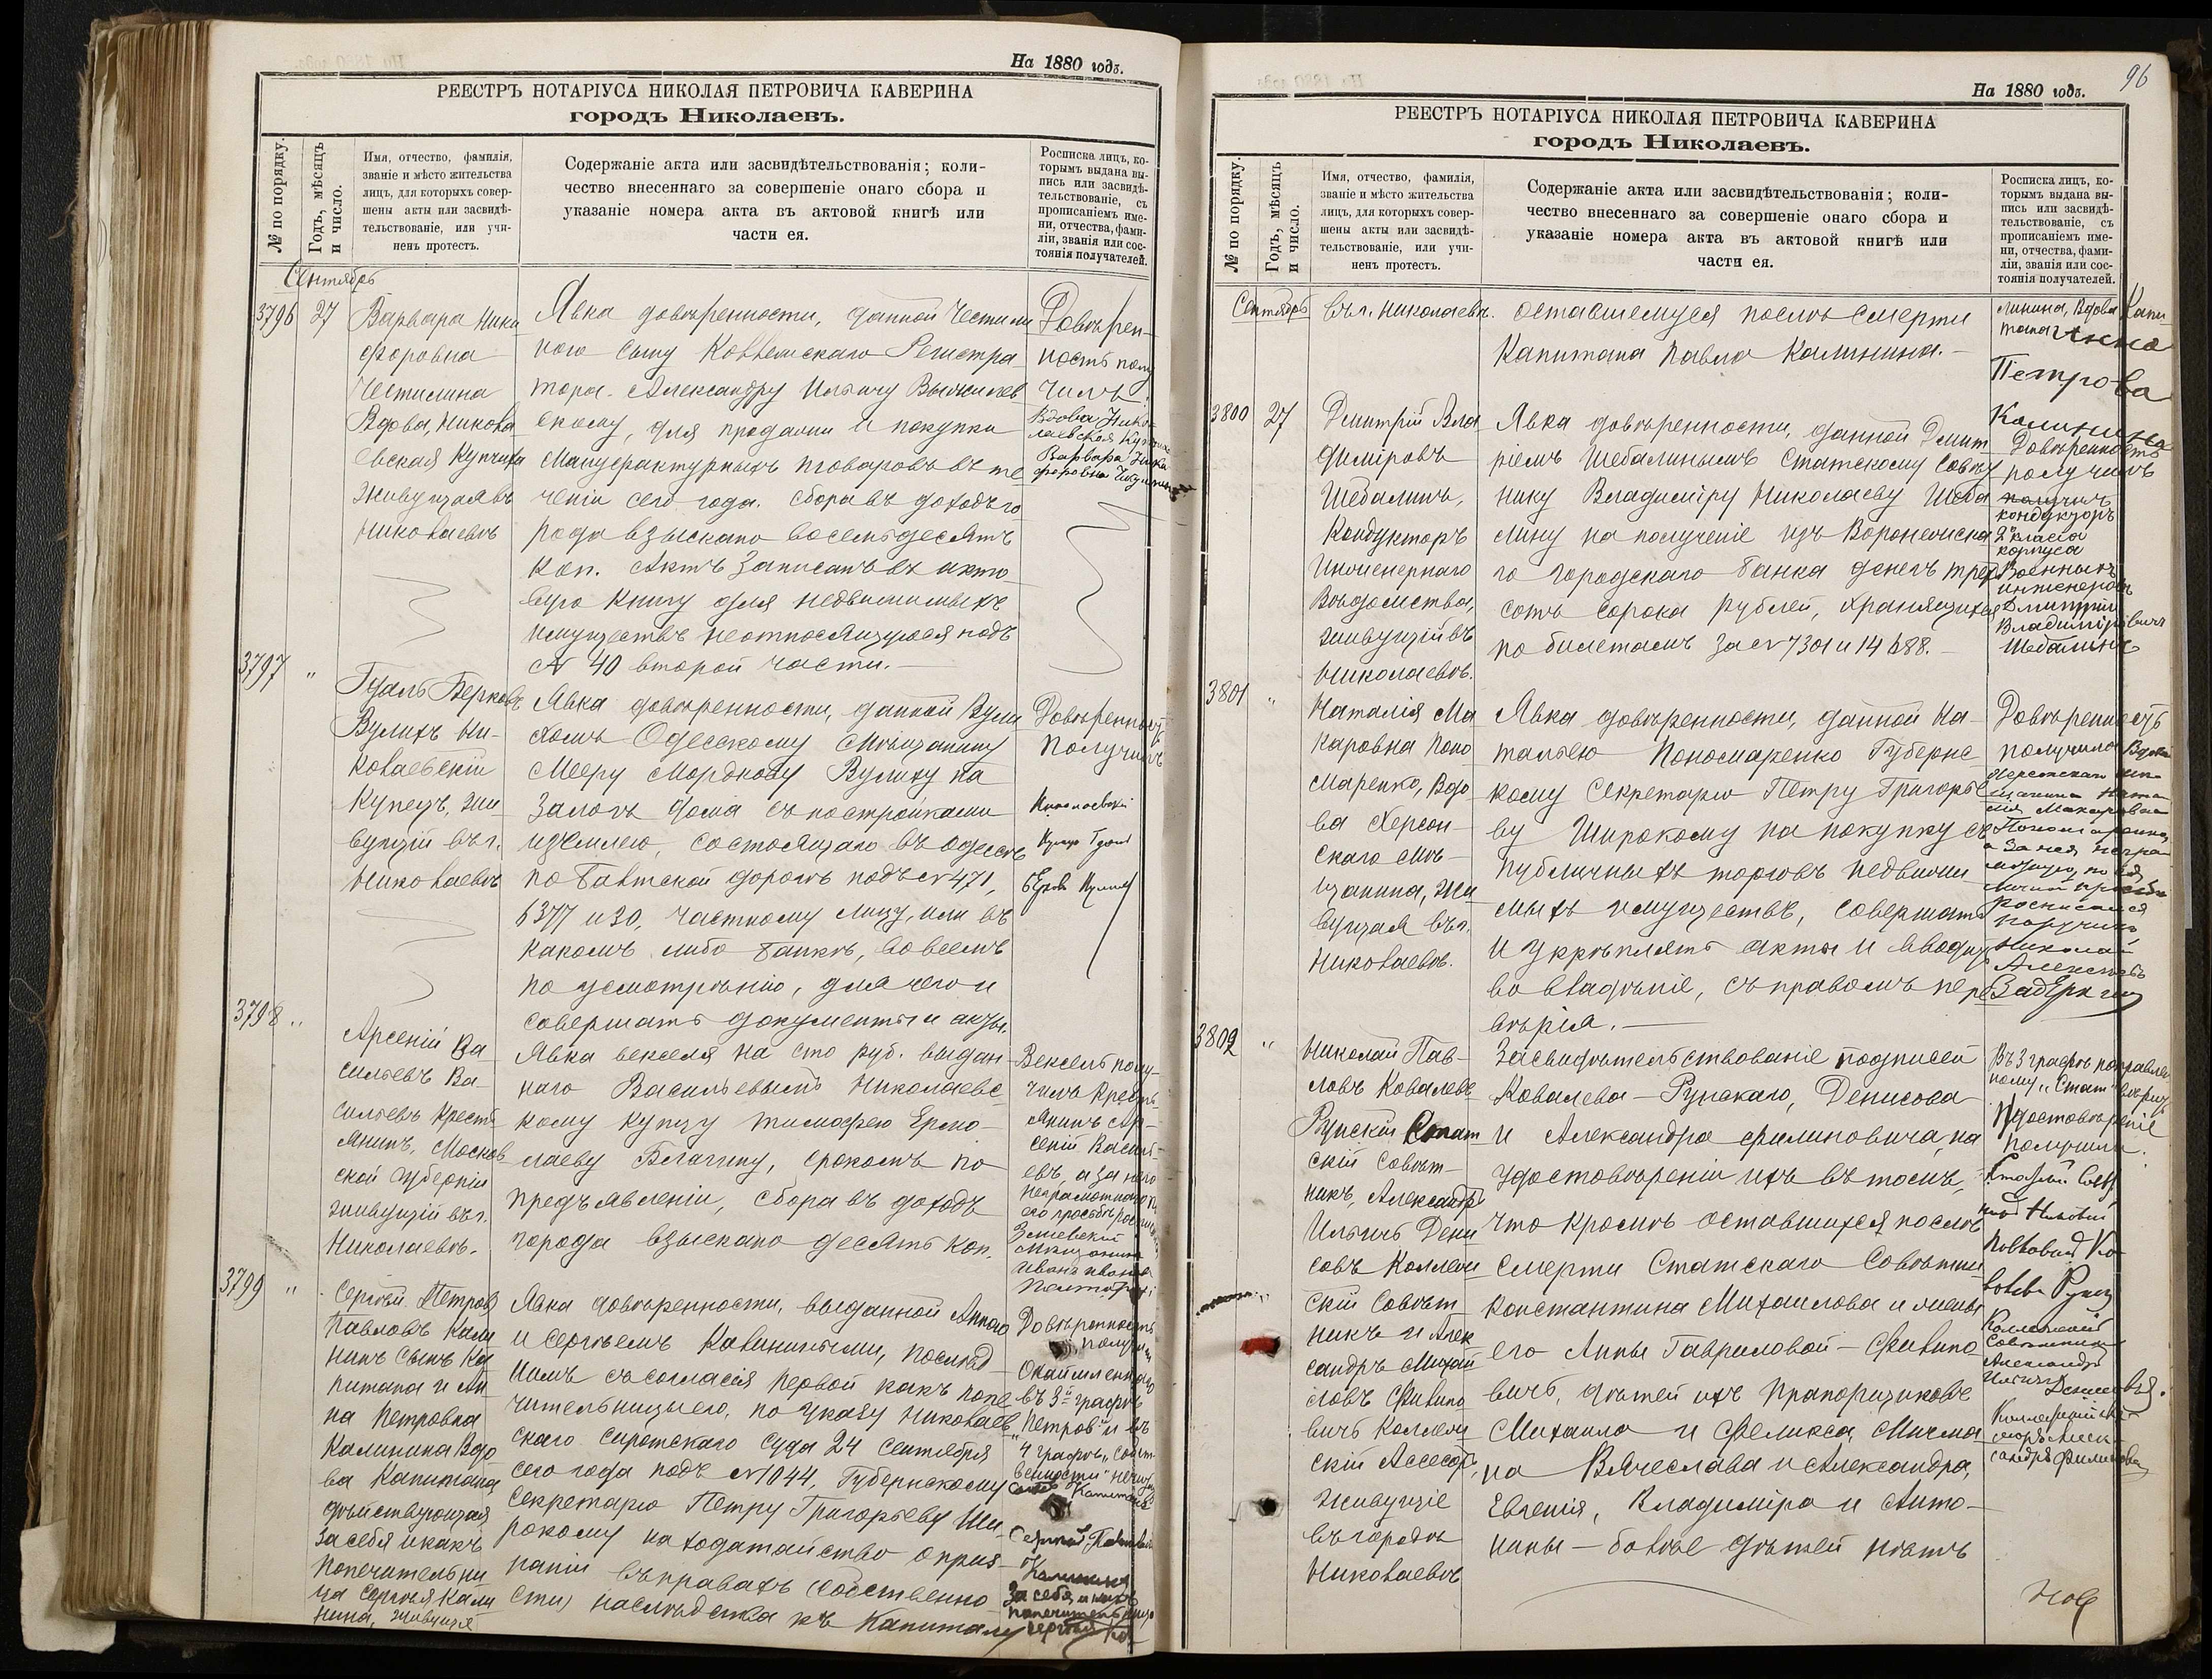 На 1880 годъ.
РЕЕСТРЪ НОТАРІУСА НИКОЛАЯ ПЕТРОВИЧА КАВЕРИНА
городъ Николаевъ.
№ по порядку.
Годъ, мѣсяцъ
и число.
Имя, отчество, фамилія,
званіе и мѣсто жительства
лицъ, для которыхъ совер-
шены акты или засвидѣ-
тельствованіе, или учи-
ненъ протестъ.
Содержаніе акта или засвидѣтельствованія; коли-
чество внесеннаго за совершеніе онаго сбора и
указаніе номера акта въ актовой книгѣ или
части ея.
Росписка лицъ, ко-
торымъ выдана вы-
пись или засвидѣ-
тельствованіе, съ
прописаніемъ име-
ни, отчества, фами-
ліи, званія или сос-
тоянія получателей.
Сентябрь
3796
27
Варвара Ники
форовна
Вдова, Никола
евская Купчиха
живущая въ
Николаевѣ
Явка довѣренности, данной
ною сыну Коллежскаго Регистра
тора Александру Ильичу
скому, для продажи и покупки
Мануфактурныхъ товаровъ въ те
ченіи сего года. Сбора въ доходъ го
рода взыскано восемьдесятъ
коп. Актъ записанъ въ акто
вую книгу для недвижимыхъ
имуществъ неотносящуюся подъ
№ 40 второй части.—
Довѣрен-
ность полу
чилъ
Вдова Нико-
лаевская
Варвара Ники
форовна
3797
"
Вулихъ Ни-
колаевскій
Купецъ, жи-
вущій въ г.
Николаевѣ
Явка довѣренности, данной Вули
хомъ Одесскому Мѣщанину
Мееру Мордкову Вулиху на
залогъ дома съ постройками
и землею, состоящаго въ Одессѣ
по Балтской дорогѣ подъ № 471,
6377 и 30, частному лицу, или въ
какомъ либо банкѣ, во всемъ
по усмотрѣнію, для чего и
совершать документы и акты.
Довѣренность
Получилъ
Николаевскій
Купецъ
3798
"
Арсеній Ва
сильевъ Ва-
сильевъ Кресть
янинъ, Москов
ской Губерніи
живущій въ г.
Николаевѣ.
Явка векселя на сто руб. выдан-
наго Васильевымъ Николаевс-
кому купцу Тимофею Ермо-
лаеву Благину, срокомъ по
предъявленіи, сбора въ доходъ
города взыскано десять коп.
Вексель полу-
чилъ Кресть-
янинъ Ар-
сеній Василь-
евъ, а за него
неграмотнаго по
его просьбѣ
Мѣщанинъ
Иванъ Иванов
3799
"
Сергѣй Петров
Павловъ Кали
нинъ сынъ Ка
питана и Ан
на Петровна
Калинина Вдо
ва Капитана
дѣйствующая
за себя и какъ
Попечительни
ца Сергѣя Кали
нина, живущія
Явка довѣренности, выданной Анною
и Сергѣемъ Калиниными, послѣд-
нимъ съ согласія первой какъ попе
чительницы его, по указу Николаев
скаго сиротскаго суда 24 сентября
сего года подъ № 1044, Губернскому
Секретарю Петру Григорьеву Ши-
рокому на ходатайство о приз-
наніи въ правахъ собственно
сти наслѣдства къ Капиталу
Довѣренность
получ
въ 3й графѣ
"Петров" и въ
4 графѣ
Калинин
За себя и какъ
попечительница
Сергѣя Ка-
96
На 1880 годъ.
РЕЕСТРЪ НОТАРІУСА НИКОЛАЯ ПЕТРОВИЧА КАВЕРИНА
городъ Николаевъ.
№ по порядку.
Годъ, мѣсяцъ
и число.
Имя, отчество, фамилія,
званіе и мѣсто жительства
лицъ, для которыхъ совер-
шены акты или засвидѣ-
тельствованіе, или учи-
ненъ протестъ.
Содержаніе акта или засвидѣтельствованія; коли-
чество внесеннаго за совершеніе онаго сбора и
указаніе номера акта въ актовой книгѣ или
части ея.
Росписка лицъ, ко-
торымъ выдана вы-
пись или засвидѣ-
тельствованіе, съ
прописаніемъ име-
ни, отчества, фами-
ліи, званія или сос-
тоянія получателей.
Сентябрь
въ г. Николаевѣ.
оставшемуся послѣ смерти
Капитана Павла Калинина.—
линина, Вдова Капи-
тана Анна
Петрова
Калинина
3800
27
Дмитрій Вла
диміровъ
Шебалинъ,
Кондукторъ
Инженернаго
Вѣдомства,
живущій въ
Николаевѣ.
Явка довѣренности, данной Дмит-
ріемъ Шебалинымъ Статскому Совѣт
нику Владиміру Николаеву Шеба
лину на полученіе изъ Воронежска
го Городскаго банка денегъ трех
сотъ сорока рублей, хранящихся
по билетамъ за № 7301 и 14688.—
Довѣренность
получилъ
получилъ
кондукторъ
2 класса
корпуса
Военныхъ
инженеровъ
Дмитрій
Владиміровичъ
Шебалинъ
3801
"
Наталія Ма
каровна Поно
маренко, Вдо
ва Херсон-
скаго Мѣ-
щанина, жи
вущая въ г.
Николаевѣ.
Явка довѣренности, данной На-
тальею Пономаренко Губернс-
кому Секретарю Петру Григорье
ву Широкому на покупку съ
публичныхъ торговъ недвижи
мыхъ имуществъ, совершать
и укрѣплять акты и вводу
во владѣніе, съ правомъ пере
вѣрія.—
Довѣренность
получила Вдова
Херсонскаго мѣ-
щанина Ната-
лія Макаровна
Пономаренко,
а за нея негра-
мотную, по ея
личной просьбѣ
росписался
поручикъ
Николай
Алексѣевъ
3802
"
Николай Пав-
ловъ Ковалевъ
Рунскій Стат
скій совѣт-
никъ, Александръ
Ильичъ Дени
совъ Коллеж
скій Совѣт-
никъ и Алек
сандръ Михай
ловъ Филипо
вичъ Коллеж
скій Ассесоръ,
живущіе
въ городѣ
Николаевѣ
Засвидѣтельствованіе подписей
Ковалева-Рунскаго, Денисова
и Александра Филиповича, на
удостовѣреніи ихъ въ томъ,
что кромѣ оставшихся послѣ
смерти Статскаго Совѣтни
Константина Михаилова и жены
его Анны Гавриловой-Филипо
вичъ, дѣтей ихъ Прапорщиковъ
Михаила и Феликса, Мичма
на Вячеслава и Александра,
Евгенія, Владиміра и Анто-
нины — болѣе дѣтей нѣтъ
Въ 3 графѣ поправлен
ному "Стат" вѣрить
Удостовѣреніе
получили.
Коллежскій
Совѣтникъ
Александръ
Ильичъ Денисовъ.